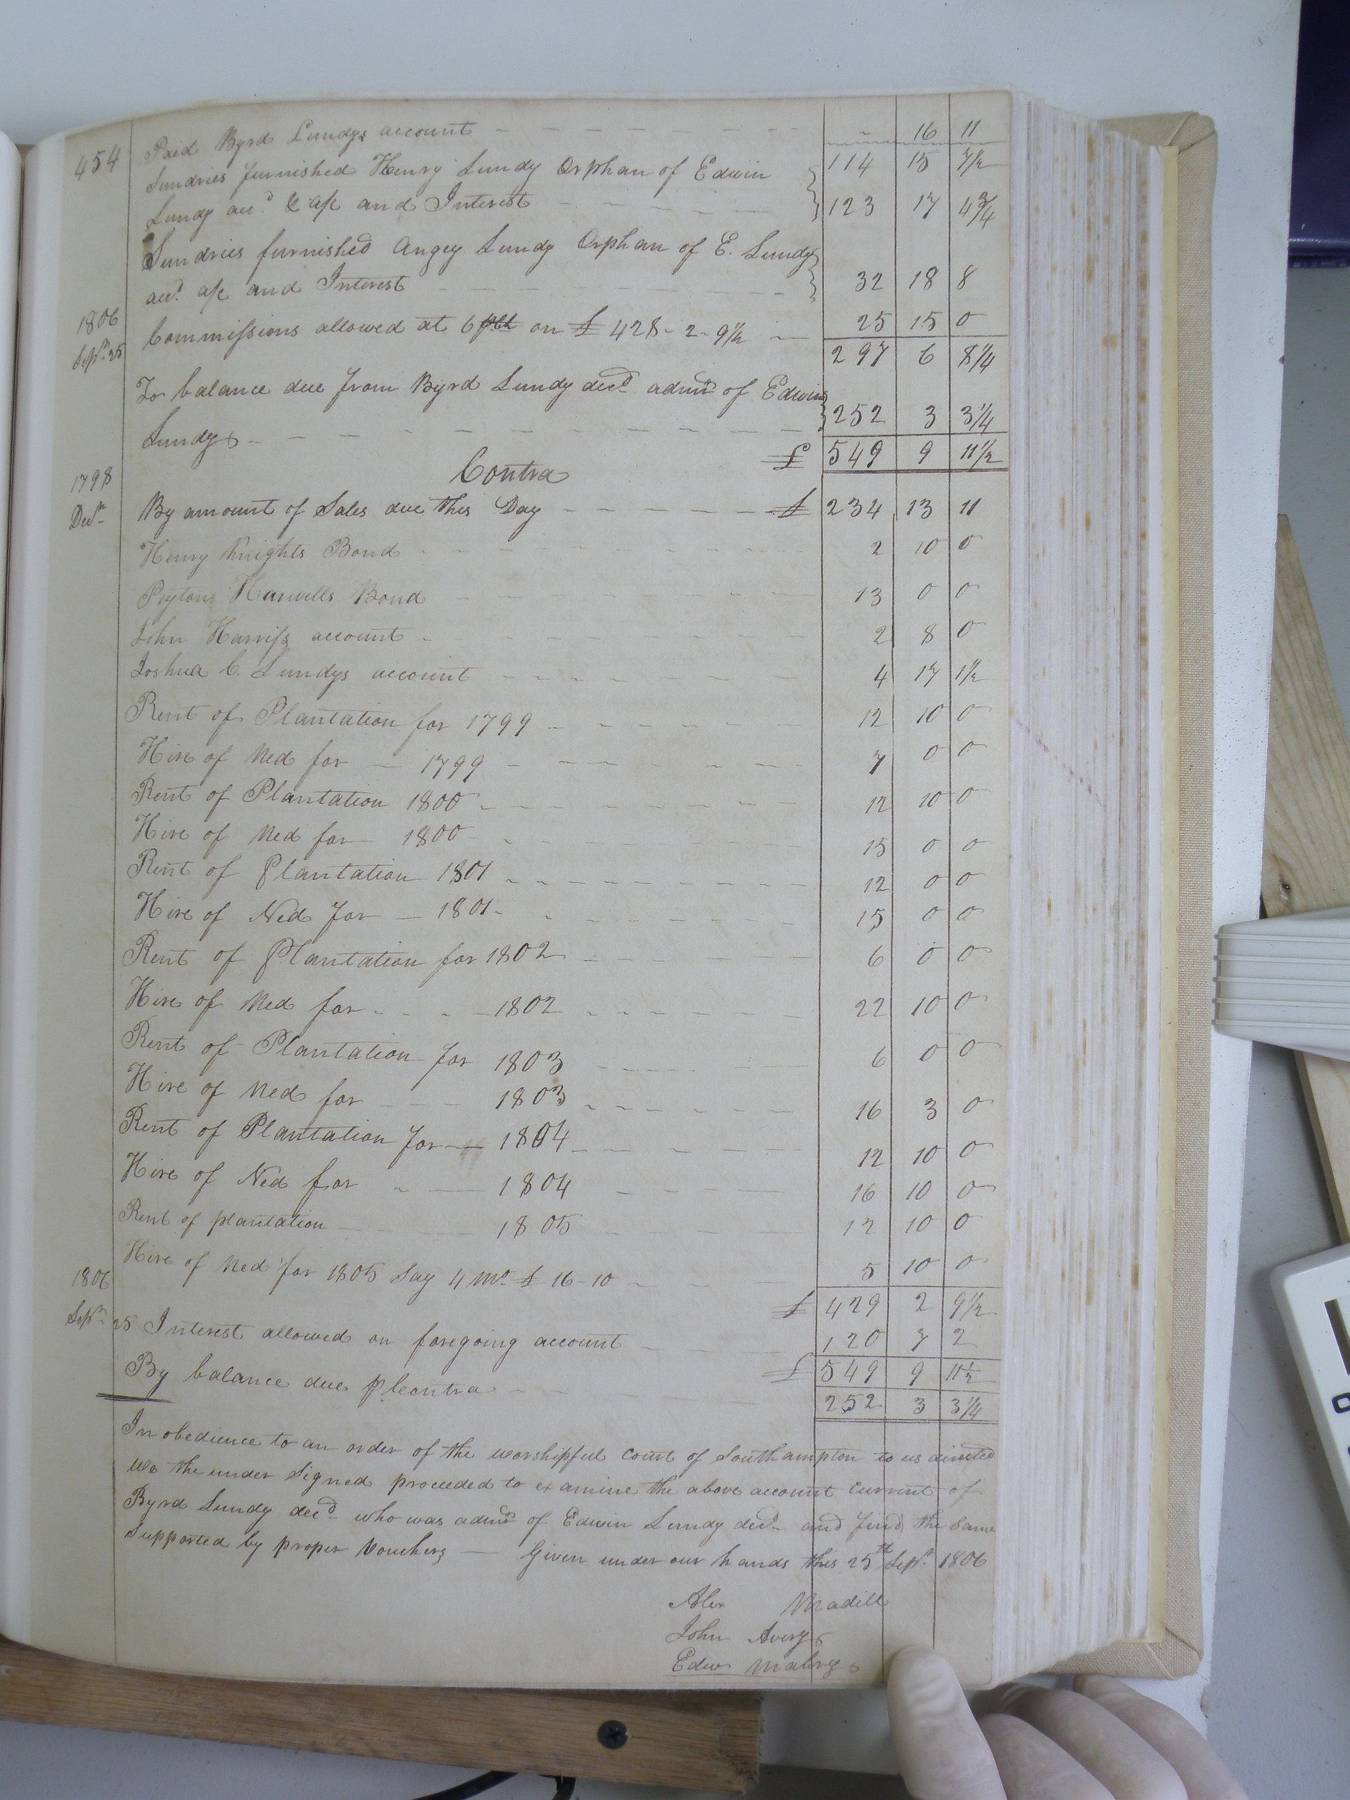 454
Paid Byrd Lundys account 16 11
114 15 7½
Sundries furnished Henry Lundy Orphan of Edwin
Lundy acc.d & a/c and Interest 123 17 4¾
Sundries furnished Angey Lundy Orphan of E. Lundy
a/c and Interest 32 18 8
1806
Sept. 25
Commissions allowed at 6 on £ 428 - 2 - 9½ 25 15 0
297 6 8¼
To balance due from Byrd Lundy decd. admr. of Edwin
Lundy 252 3 3¼
£ 549 9 11½
Contra
1798
Decr.
By amount of Sales due this Day £ 234 13 11
Henry Knights Bond 2 10 0
Peyton Harwells Bond 13 0 0
John Harriss account 2 8 0
Joshua C. Lundys account 4 17 1½
Rent of Plantation for 1799 12 10 0
Hire of Ned for 1799 7 0 0
Rent of Plantation 1800 12 10 0
Hire of Ned for 1800 15 0 0
Rent of Plantation 1801 12 0 0
Hire of Ned for 1801 15 0 0
Rent of Plantation for 1802 6 0 0
Hire of Ned for 1802 22 10 0
Rent of Plantation for 1803 6 0 0
Hire of Ned for 1803 16 3 0
Rent of Plantation for 1804 12 10 0
Hire of Ned for 1804 16 10 0
Rent of plantation 1805 12 10 0
Hire of Ned for 1805 Say 4 Mo. £ 16-10 5 10 0
£ 429 2 9½
1806
Sept. 25 Interest allowed on foregoing account 120 7 2
£ 549 9 11½
By balance due p Contra 252 3 3¼
In obedience to an order of the worshipful court of Southampton to us directed
We the under Signed proceeded to examine the above account Current of
Byrd Lundy decd. who was admr. of Edwin Lundy decd. and find the Same
Supported by proper Vouchers — Given under our hands this 25th Sept. 1806
Alex Madill
John Avery
Edw. Mabry